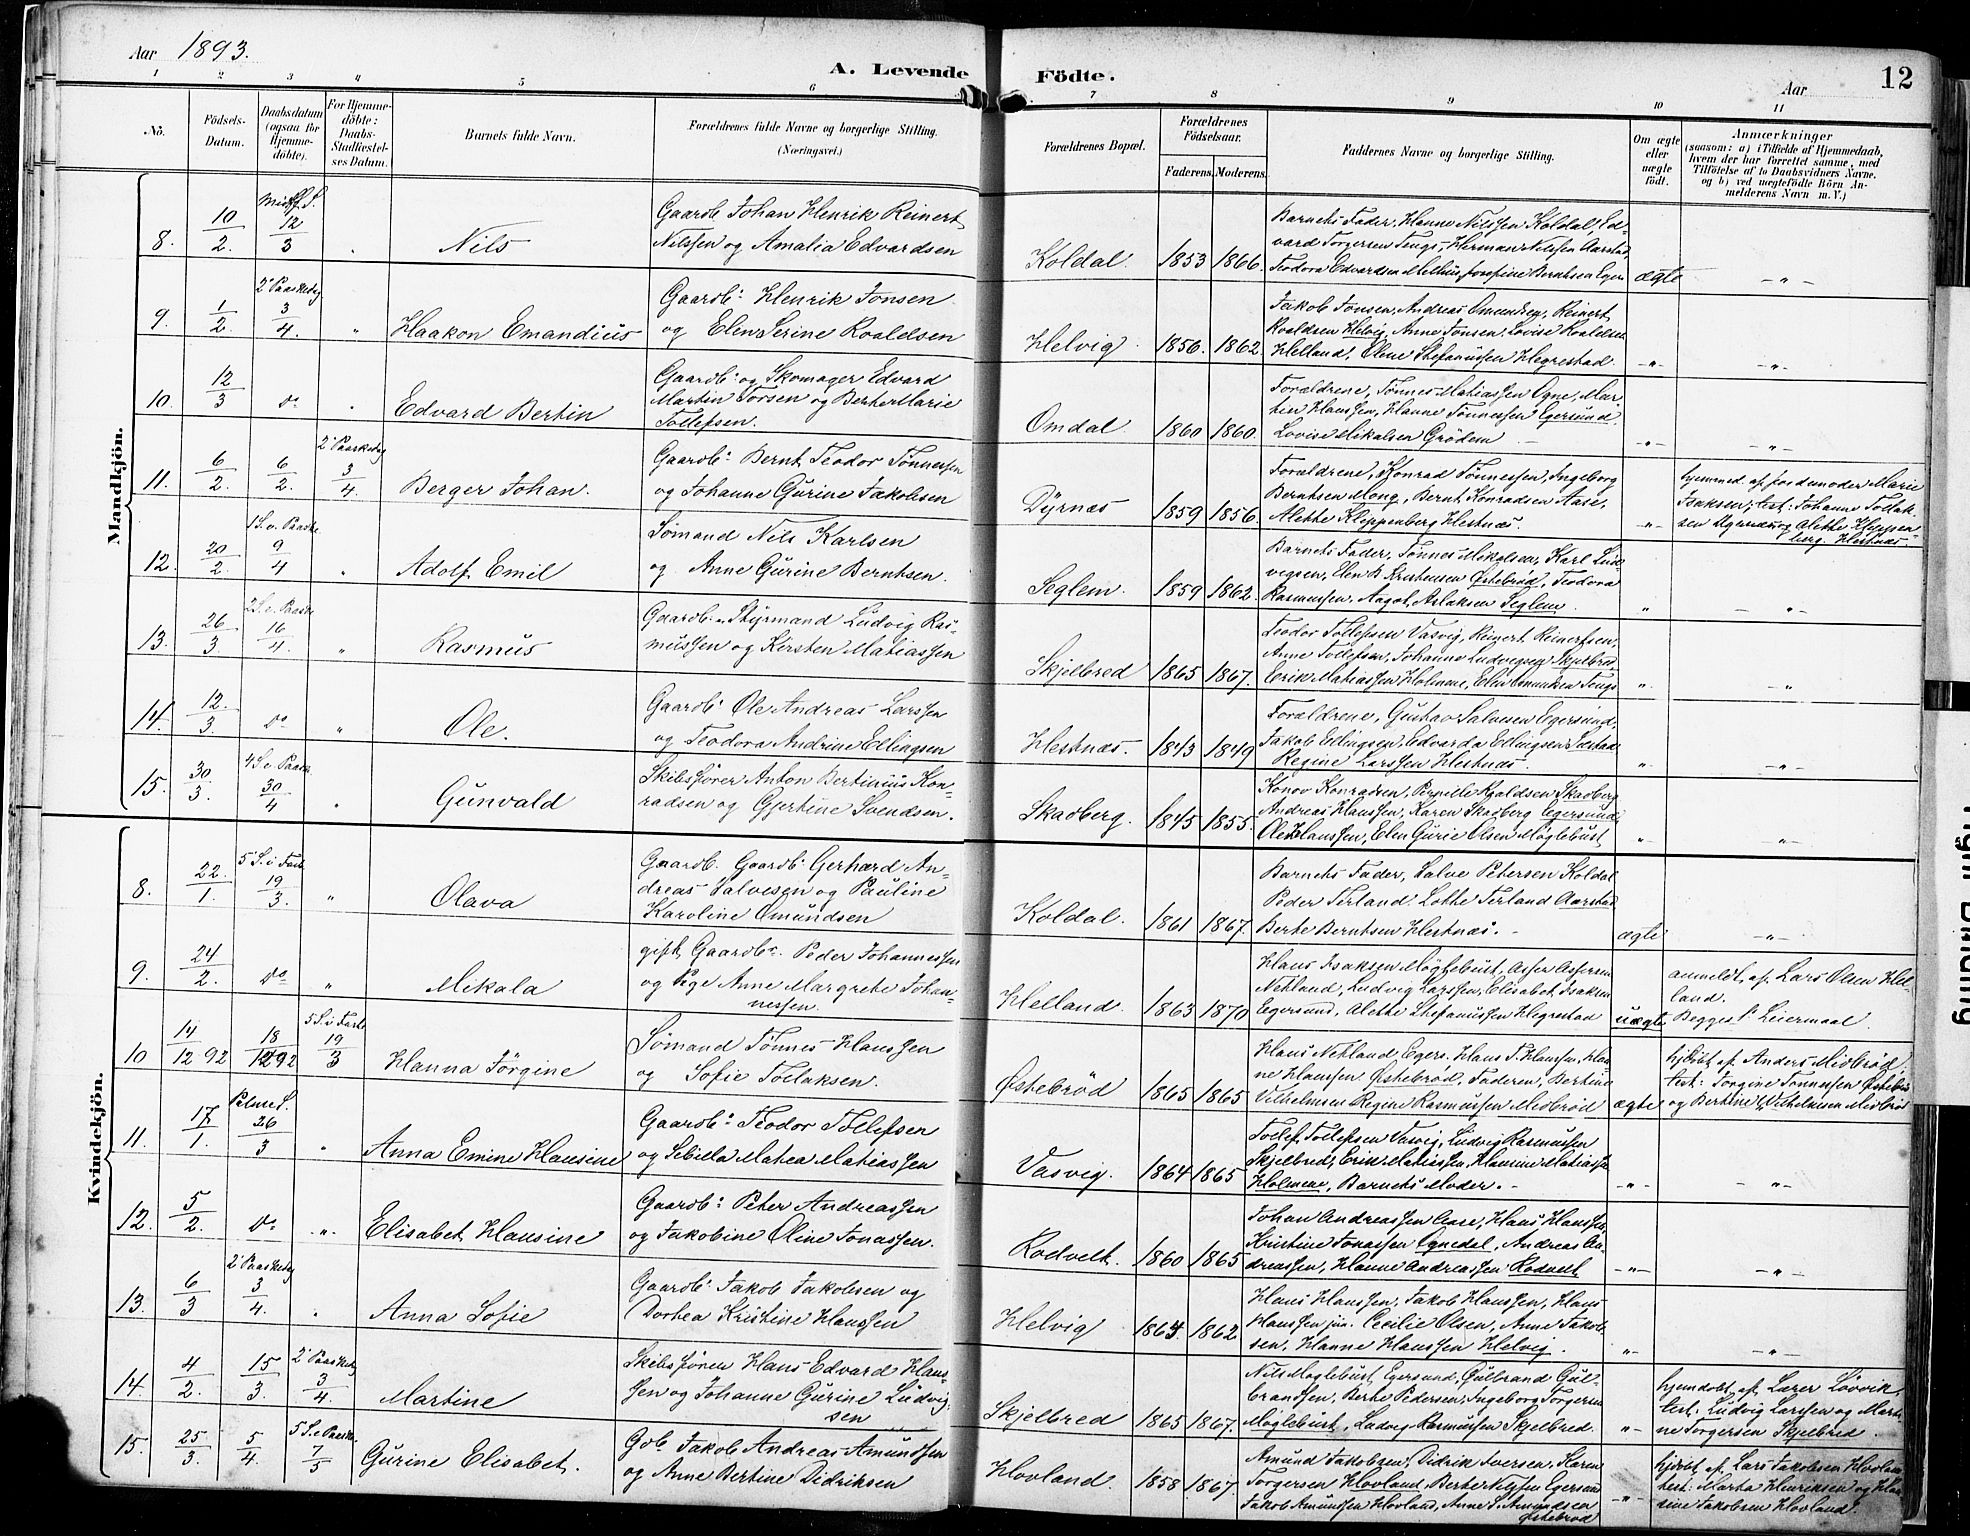 Aar 1893.
A. Levende Födte.
Aar
12
1 2 3 4 5 6 7 8 9 10 11
No.
Födsels-Datum.
Daabsdatum (ogsaa for Hjemmedöbte).
For Hjemmedöbte: Daabs-Stadfæstelses Datum.
Barnets fulde Navn.
Forældrenes fulde Navne og borgerlige Stilling.
(Næringsvei.)
Forældrenes Bopæl.
Forældrenes Födselsaar.
Faderens. Moderens.
Faddernes Navne og borgerlige Stilling.
Om ægte eller uægte födt.
Anmærkninger
(saasom: a) i Tilfælde af Hjemmedaab,
hvem der har forrettet samme, med
Tilföielse af to Daabsvidners Navne,
og b) ved uægtefödte Börn An-
melderens Navn m. V.)
Mandkjön.
8. 10/2. 12/3 " Nils
Gaardb. Johan Henrik Reinert
Nilssen og Amalia Edvardsen
Koldal. 1853 1866.
Barnets Fader, Hanne Nilssen Koldal, Ed-
vard Torgersen Tengs, Herman Nilssen Aarstad
Teodora Edvardsen Melhus, Josefine Berntsen Eger
ægte - " -
9. 1/2. 2 Paaskedag 3/4. " Haakon Emandius
Gaardb: Henrik Jonsen
og Elen Serine Roaldsen
Helvig. 1856. 1862.
Jakob Jonsen, Andreas Omundsen, Reinert
Roaldsen Helvig, Anne Jonsen, Lovise Roaldsen
Helland, Elene Stefanussen Hegrestad.
- " - - " -
10. 12/3 do " Edvard Bertin
Gaardb: og Skomager Edvard
Martin Torsen og Berte Marie
Tollefsen.
Omdal. 1860 1860.
Forældrene, Tønnes Matiassen Ogne, Mar-
tin Hanssen, Hanne Tønnessen Egersund.
Lovise Mikalsen Grödem
- " - - " -
11. 6/2. 6/2. 2 Paaskedag 3/4. Berger Johan.
Gaardb: Bernt Teodor Tønnessen
og Johanne Gurine Jakobsen
Dyrnæs 1859 1856.
Forældrene, Konrad Tønnessen, Ingeborg
Berntsen Mong, Bernt Konradsen Aase,
Alette Kleppenberg Hestnæs.
- " - hjemmed. af jordemoder Marie
Isaksen; test: Johanne Tollak-
sen Dyrnæs og Alette Kleppen-
berg Hestnæs.
12. 20/2. 1 S. e. Paaske 9/4 " Adolf Emil
Sømand Nils Karlsen
og Anne Gurine Berntsen.
Seglem. 1859 1862.
Barnets Fader, Tønnes Mikalsen, Karl Lud-
vigsen, Elen B. Kristensen Østebrød, Teodora
Rasmussen, Aagot Aslaksen Seglem.
" - " -
13. 26/3 2 S. e. Paaske 16/4. " Rasmus
Gaardb: Styrmand Ludvig Ras-
mussen og Kirsten Matiassen
Skjelbred 1865 1867.
Teodor Tollefsen Vasvig, Reinert Reinertsen,
Anne Tollefsen, Johanne Ludvigsen Skjelbred,
Erik Matiassen Holmene, Elen Omundsen Tengs
" - " -
14. 12./3. do " Ole.
Gaardb: Ole Andreas Larssen
og Teodora Andrine Ellingsen
Hestnæs. 1843 1849
Forældrene, Gustav Salvesen Egersund,
Jakob Ellingsen, Edvarda Ellingsen Sæstad
Regine Larssen Hestnæs.
" - " -
15. 30/3. 4 S. e. Paaske 30/4 " Gunvald
Skibsfører Anton Bertinius Kon-
radsen og Gjertine Svendsen.
Skadberg. 1845 1855.
Konov Konradsen, Pernille Roaldsen Skadberg
Andreas Hanssen, Karen Skadberg Egersund,
Ole Hanssen, Elen Gurie Olsen Møglebust
" - " -
Kvindekjön.
8. 22./1. 5 S. i Faste 19/3. " Olava
Gaardb. Gaardb: Gerhard An-
dreas Salvesen og Pauline
Karoline Omundsen
Koldal. 1861 1867.
Barnets Fader, Salve Petersen Koldal
Peder Terland. Lotte Terland Aarstad
Berte Berntsen Hestnæs.
ægte - " -
9. 24/2. do " Mikala
gift Gaardbr. Peder Johannessen
og Pige Anne Margrete Johan-
nessen.
Helland. 1863 1870
Hans Isaksen Møglebust, Asser Assersen
Netland, Ludvig Larssen, Elisabet Isaksen
Egersund, Alette Stefanussen Hegrestad
uægte anmeldt af Lars Olsen Hel-
land.
Begges 1' Leiermaal.
10 14/12 92 18/12 92 5 S. i Faste 19/3 Hanna Jörgine
Sømand Tønnes Hanssen
og Sofie Tollaksen.
Østebrød 1865 1865
Hans Netland Egers. Hans T. Hanssen, Han-
ne Hanssen Østebrød, Faderen, Bertine
Vilhelmsen Regine Rasmussen Midbrød
ægte hjdøbt af Anders Midbrød,
test: Jorgine Tønnessen Østebrø
og Bertine Vilhelmsen Midbrød
11. 17/1. Palme S. 26/3 " Anna Emine Hansine
Gaardb: Teodor Tollefsen
og Sibilla Matea Matiassen
Vasvig. 1864 1865
Tollef Tollefsen Vasvig, Ludvig Rasmussen
Skjelbred, Erik Matiassen, Hansine Matiassen
Holmene, Barnets Moder.
- " - - " -
12. 5/2. do " Elisabet Hansine
Gaardb: Peter Andreassen
og Jakobine Oline Jonassen.
Rodvelt. 1860 1865
Johan Andreassen Aase, Hans Hanssen
Kristine Jonassen Ognedal, Andreas An-
dreassen, Hanne Andreassen Rodvelt
- " - - " -
13. 6/3 2 Paaskedag 3/4. " Anna Sofie
Gaardb: Jakob Jakobsen og
Dorthea Kristine Hanssen
Helvig 1864. 1862
Hans Hanssen, Jakob Hanssen, Hans
Hanssen jun. Cecilie Olsen, Anne Jakob-
sen, Hanne Hanssen Helvig.
" - " -
14. 4/2. 15/3. 2 Paaskedag 3/4. Martine
Skibsføren Hans Edvard Hans-
sen og Johanne Gurine Ludvig-
sen
Skjelbred 1865 1867.
Nils Møglebust Egersund, Gulbrand Gul-
brandsen, Berte Pedersen, Ingeborg Torgersen
Møglebust, Ludvig Rasmussen Skjelbred.
- " - hjemdøbt af Lazer Løvvik,
test: Ludvig Larssen og Marti-
ne Torgersen Skjelbred.
15. 25/3. 5/4. 5 S. e. Paaske 7/5 Gurine Elisabet.
Gdb. Jakob Andreas Amundsen
og Anne Bertine Didriksen
Hovland. 1858 1867.
Amund Jakobsen, Didrik Iversen, Karen
Torgersen Hovland, Berte Nilsen Egersund
Jakob Amundsen Hovland, Anne S. Amundsen
Østebrød
- " - hjdøbt af Lars Jakobsen Hovland
test: Marta Henriksen og Han-
sine Jakobsen Hovland.